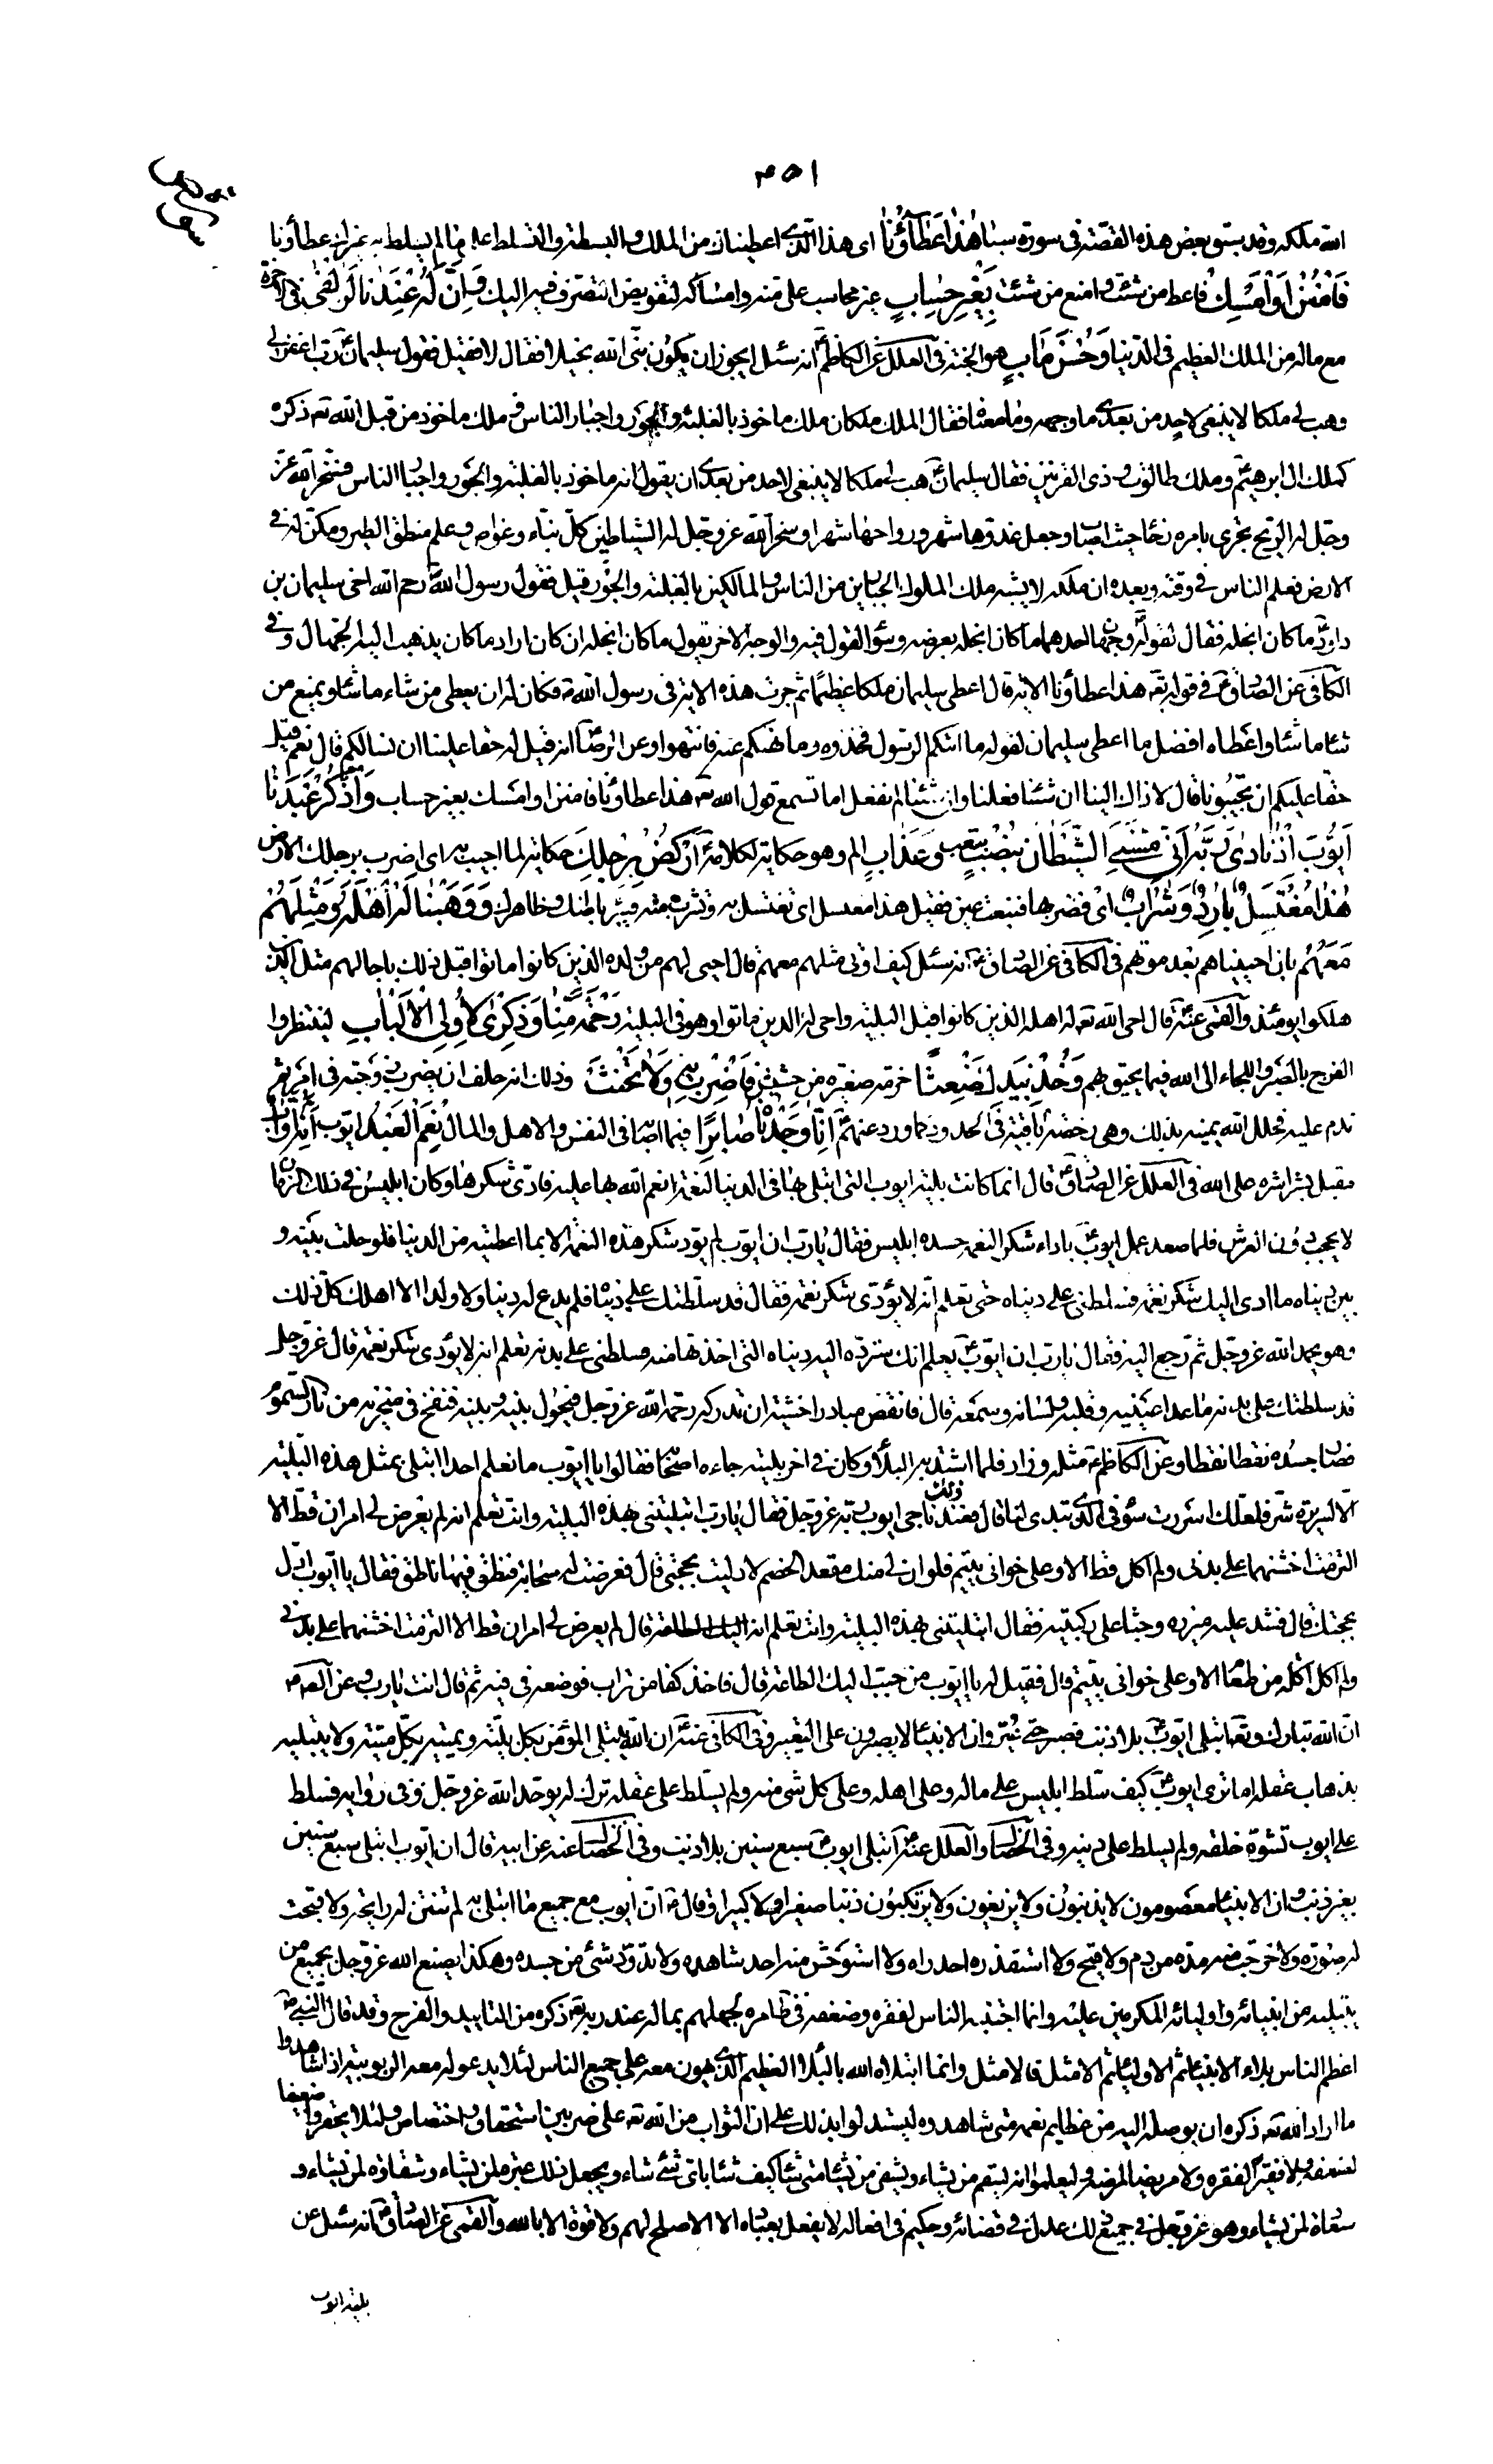 ٤٥١
سورة ص
الله ملكه وقد سبق بعض هذه القصة في سورة سبا هٰذا عَطٰآؤُنٰا اى هذا الّذى اعطيناك من الملك والبسطة والتسلط على ما لم يسلط به غيرك عطاؤنا
فَامْنُنْ اَوْ اَمْسِكْ فاعط من شئت وامنع من شئت بِغَيْرِ حِسٰابٍ غير محاسب على منه وامساكه لتفويض التصرف فيه اليك وَاِنَّ لَهُ عِنْدَنٰا لَزُلْفٰى فى الاخرة
مع ماله من الملك العظيم فى الدّنيا وَحُسْنَ مَاٰبٍ هو الجنّة فى العلل عن الكاظمؑ انه سئل ايجوز ان يكون نبىّ الله بخيلا فقال لا فقيل فقول سليمانؑ رب اغفر لى
وهب لى ملكا لا ينبغى لاحد من بعدى ما وجهه وما معناه فقال الملك ملكان ملك ماخوذ بالغلبة والجور واجبار الناس وملك ماخوذ من قبل الله تعـ ذكره
كملك ال ابرهيمؑ وملك طالوت وذى القرنين فقال سليمانؑ هب لى ملكا لا ينبغى لاحد من بعدى ان يقول انه ماخوذ بالغلبة والجور واجبار الناس فسخر الله عزّ
وجلّ له الرّيح تجرى بامره رخاء حيث اصاب وجعل غدوها شهر ورواحها شهرا وسخر الله عز وجل له الشياطين كلّ بنّاء وغواص وعلم منطق الطير ومكن له فى
الارض فعلم الناس فى وقته وبعده ان ملكه لا يشبه ملك الملوك الجبارين من الناس والمالكين بالغلبة والجور قيل فقول رسول اللهؐ رحم الله اخى سليمان بن
داودؑ ما كان ابخله فقال لقولهؐ وجهان احدهما ما كان ابخله بعرضه وسوء القول فيه والوجه الاخر يقول ما كان ابخله ان كان اراد ما كان يذهب اليه الجهال وفى
الكافى عن الصادقؑ فى قوله تعـ هذا عطاؤنا الاية قال اعطى سليمان ملكا عظيمًا ثم جرت هذه الاية فى رسول اللهؐ فكان له ان يعطى من شاء ما شاء ويمنع من
شاء ما شاء واعطاه افضل ما اعطى سليمان لقوله ما اتيكم الرسول فخذوه وما نهيكم عنه فانتهوا وعن الرضاؑ انه قيل له حقا علينا ان نسالكم قال نعم قيل
حقّا عليكم ان تجيبونا قال لا ذاك الينا ان شئنا فعلنا وان شئنا لم نفعل اما تسمع قول الله تعـ هذا عطاؤنا فامنن او امسك بغير حساب وَاذْكُرْ عَبْدَنٰا
اَيُّوبَ اِذْ نٰادىٰ رَبَّهُ اَنّى مَسَّنِىَ الشَّيْطٰانُ بِنُصْبٍ بتعب وَعَذٰابٍ الم وهو حكاية لكلامه اُرْكُضْ بِرِجْلِكَ حكاية لما اجيب به اى اضرب برجلك الارض
هٰذٰا مُغْتَسَلٌ بٰارِدٌ وَشَرٰابٌ اى فضربها فنبعت عين فقيل هذا مغتسل اى تغتسل به وتشرب منه فيبرء باطنك وظاهرك وَوَهَبْنٰا لَهُ اَهْلَهُ وَمِثْلَهُمْ
مَعَهُمْ بان احييناهم بعد موتهم فى الكافى عن الصادقؑ انه سئل كيف اوتى مثلهم معهم قال احيى لهم من ولده الذين كانوا ماتوا قبل ذلك باجالهم مثل الذين
هلكوا يومئذ والقمى عنهؑ قال احى الله تعـ له اهله الذين كانوا قبل البلية واحى له الذين ماتوا وهو فى البلية رَحْمَةً مِنّٰا وَذِكْرىٰ لاُِولِى الْاَلْبٰابِ لينتظروا
الفرج بالصّبر واللجاء الى الله فيما يحيق بهم وَخُذْ بِيَدِكَ ضِغْثًا حزمة صغيرة من حشيش فَاضْرِبْ بِهِ وَلاٰ تَحْنَثْ وذلك انه حلف ان يضرب زوجته فى امر ثم
ندم عليه فحلل الله يمينه بذلك وهى رخصة باقية فى الحدود كما ورد عنهمؑ اِنّٰا وَجَدْنٰاهُ صٰابِرًا فيما اصابه فى النفس والاهل والمال نِعْمَ الْعَبْدُ ايوب اِنَّهُ اَوّٰابٌ
مقبل بشراشره على الله فى العلل عن الصّادقؑ قال انما كانت بلية ايوب التى ابتلى بها فى الدنيا لنعمة انعم الله بها عليه فادّى شكرها وكان ابليس فى ذلك الزمان
لا يحجب دون العرش فلما صعد عمل ايوبؑ باداء شكر النعمة حسده ابليس فقال يارب ان ايوب لم يؤد شكر هذه النعمة الا بما اعطيته من الدنيا فلو حلت بينه و
بين دنياه ما ادى اليك شكر نعمة فسلطنى على دنياه حتى تعلم انه لا يؤدى شكر نعمة فقال قد سلطتك على دنياه فلم يدع له دنيا ولا ولدا الا اهلك كل ذلك
وهو يحمد الله عز وجل ثم رجع اليه فقال يارب ان ايوبؑ يعلم انك سترد اليه دنياه التى اخذتها منه فسلطنى على بدنه تعلم انه لا يؤدى شكر نعمة قال عز وجل
قد سلطتك على بدنه ما عدا عينيه وقلبه ولسانه وسمعه قال فانقض مبادرا خشية ان تدركه رحمة الله عز وجل فيحول بينه وبينه فنفخ فى منخريه من نار السّموم
فصار جسده نقطا نقطا وعن الكاظمؑ مثله وزاد فلما اشتد به البلاء وكان فى اخر بليته جاءه اصحابه فقالوا يا ايوب ما نعلم احدا ابتلى بمثل هذه البلية
الا لسريرة شرّ فلعلك اسررت سوء فى الّذى تبدى لنا قال فعند ذلك ناجى ايوب ربه عز وجل فقال يارب ابتليتنى بهذه البلية وانت تعلم انه لم يعرض لى امران قطّ الا
التزمت اخشنهما على بدنى ولم اكل قط الا وعلى خوانى يتيم فلو ان لى منك مقعد الخصم لادليت بحجتى قال فعرضت له سحابة فنطق فيها ناطق فقال يا ايوب ادل
بحجتك قال فشد عليه ميزره وجثا على ركبتيه فقال ابتليتنى بهذه البلية وانت تعلم انه لم يعرض لى امران قط الا التزمت اخشنهما على بدنى
ولم اكل اكلة من طعام الا وعلى خوانى يتيم قال فقيل له يا ايوب من حبب اليك الطاعة قال فاخذ كفا من تراب فوضعه فى فيه ثم قال انت يارب وعن الصادقؑ
ان الله تبارك وتعـ ابتلى ايوبؑ بلا ذنب فصبر حتى عيّر وان الانبياء لا يصبرون على التعيير وفى الكافى عنهؑ ان الله يبتلى المؤمن بكل بلية ويميته بكلّ ميتة ولا يبتليه
بذهاب عقله اما ترى ايوبؑ كيف سلّط ابليس على ماله وعلى اهله وعلى كل شى منه ولم يسلّط على عقله ترك له ليوحد الله عز وجل وفى رواية فسلط
على ايوب تشوّه خلقه ولم يسلط على دينه وفى الخصال والعلل عنهؑ ابتلى ايوبؑ سبع سنين بلا ذنب وفى الخصال عنه عن ابيه قال ان ايوب ابتلى سبع سنين
بغير ذنب وان الانبياء معصومون لا يذنبون ولا يزيغون ولا يرتكبون ذنبا صغيرا ولا كبيرا وقالؑ ان ايوب مع جميع ما ابتلى به لم تنتن له رايحة ولا قبحت
له صورة ولا خرجت منه مدة من دم ولا قيح ولا استقذره احد راه ولا استوحش منه احد شاهده ولا تدوّد شئى من جسده وهكذا يصنع الله عز وجل بجميع من
يبتليه من انبيائه واوليائه المكرمين عليه وانما اجتنبه الناس لفقره وضعفه فى ظاهره لجهلهم بماله عند ربه تعـ ذكره من التاييد والفرج وقد قال النبىؐ
اعظم الناس بلاء الانبياء ثم الاولياء ثم الامثل فالامثل وانما ابتلاه الله بالبلاء العظيم الّذى يهون معه على جميع الناس لئلا يدعوا له معه الربوبية اذا شاهدوا
ما اراد الله تعـ ذكره ان يوصله اليه من عظايم نعمه متى شاهدوه ليستدلوا بذلك على ان الثواب من الله تعـ على ضربين استحقاق واختصاص ولئلا يحتقروا ضعيفا
لضعفه ولا فقيرا لفقره ولا مريضا لمرضه وليعلموا انه يسقم من يشاء ويشفى من يشاء متى شاء كيف شاء باى شئى شاء ويجعل ذلك عبرة لمن يشاء وشقاوة لمن يشاء و
سعادة لمن يشاء وهو عز وجل فى جميع ذلك عدل فى قضائه وحكيم فى افعاله لا يفعل بعباده الا الاصلح لهم ولا قوة الا بالله والقمى عن الصّادقؑ انه سئل عن
بلية ايوب